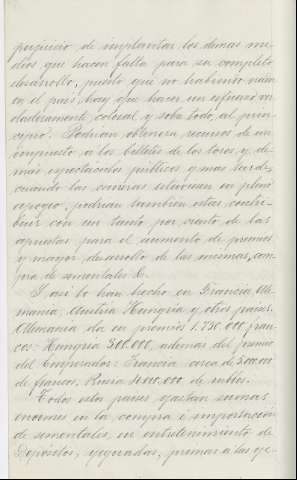 perjuicio de implantar los demas me-
dios que hacen falta para su completo
desarrollo, puesto que no habiendo nada
en el pais hay que hacer un esfuerzo ver
daderamente colosal y sobre todo, al prin-
cipio. Podrian obtenerse recursos de un
impuesto a los billetes de los toros y de-
más espectaculos públicos y mas tarde,
cuando las carreras estuviesen en pleno
apogeo, podrian tambien estas contri-
buir con un tanto por ciento de las
apuestas para el aumento de premios
y mayor desarrollo de las mismas, com-
pra de sementales &.
Y asi lo han hecho en Francia, Ale-
mania, Austria Hungria y otros paises.
Alemania da en premios 1.730.000 fran-
cos: Hungria 500.000, ademas del premio
del Emperador: Francia cerca de
de francos. Rusia de rublos.
Todos estos paises gastan sumas
enormes en la compra e importacion
de sementales, en entretenimiento de
Depósitos, yeguadas, primas a las ye-